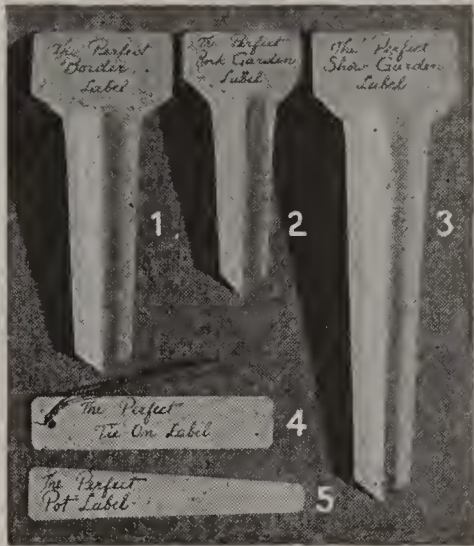 The Perfect
Border
Label
The Perfect
Rock Garden
Label
The Perfect
Show Garden
Label
1
2
3
The Perfect
Tie On Label
4
The Perfect
Pot Label
5